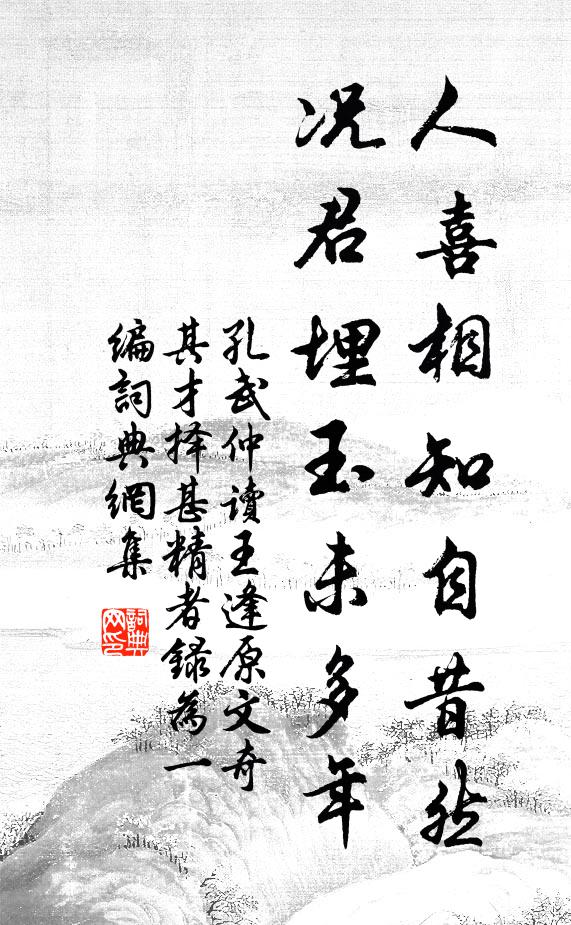 人喜相知自昔然
况君埋玉未多年
孔武仲读王逢原文奇
其才择甚精者録為一
编詞典網集
詞典网印